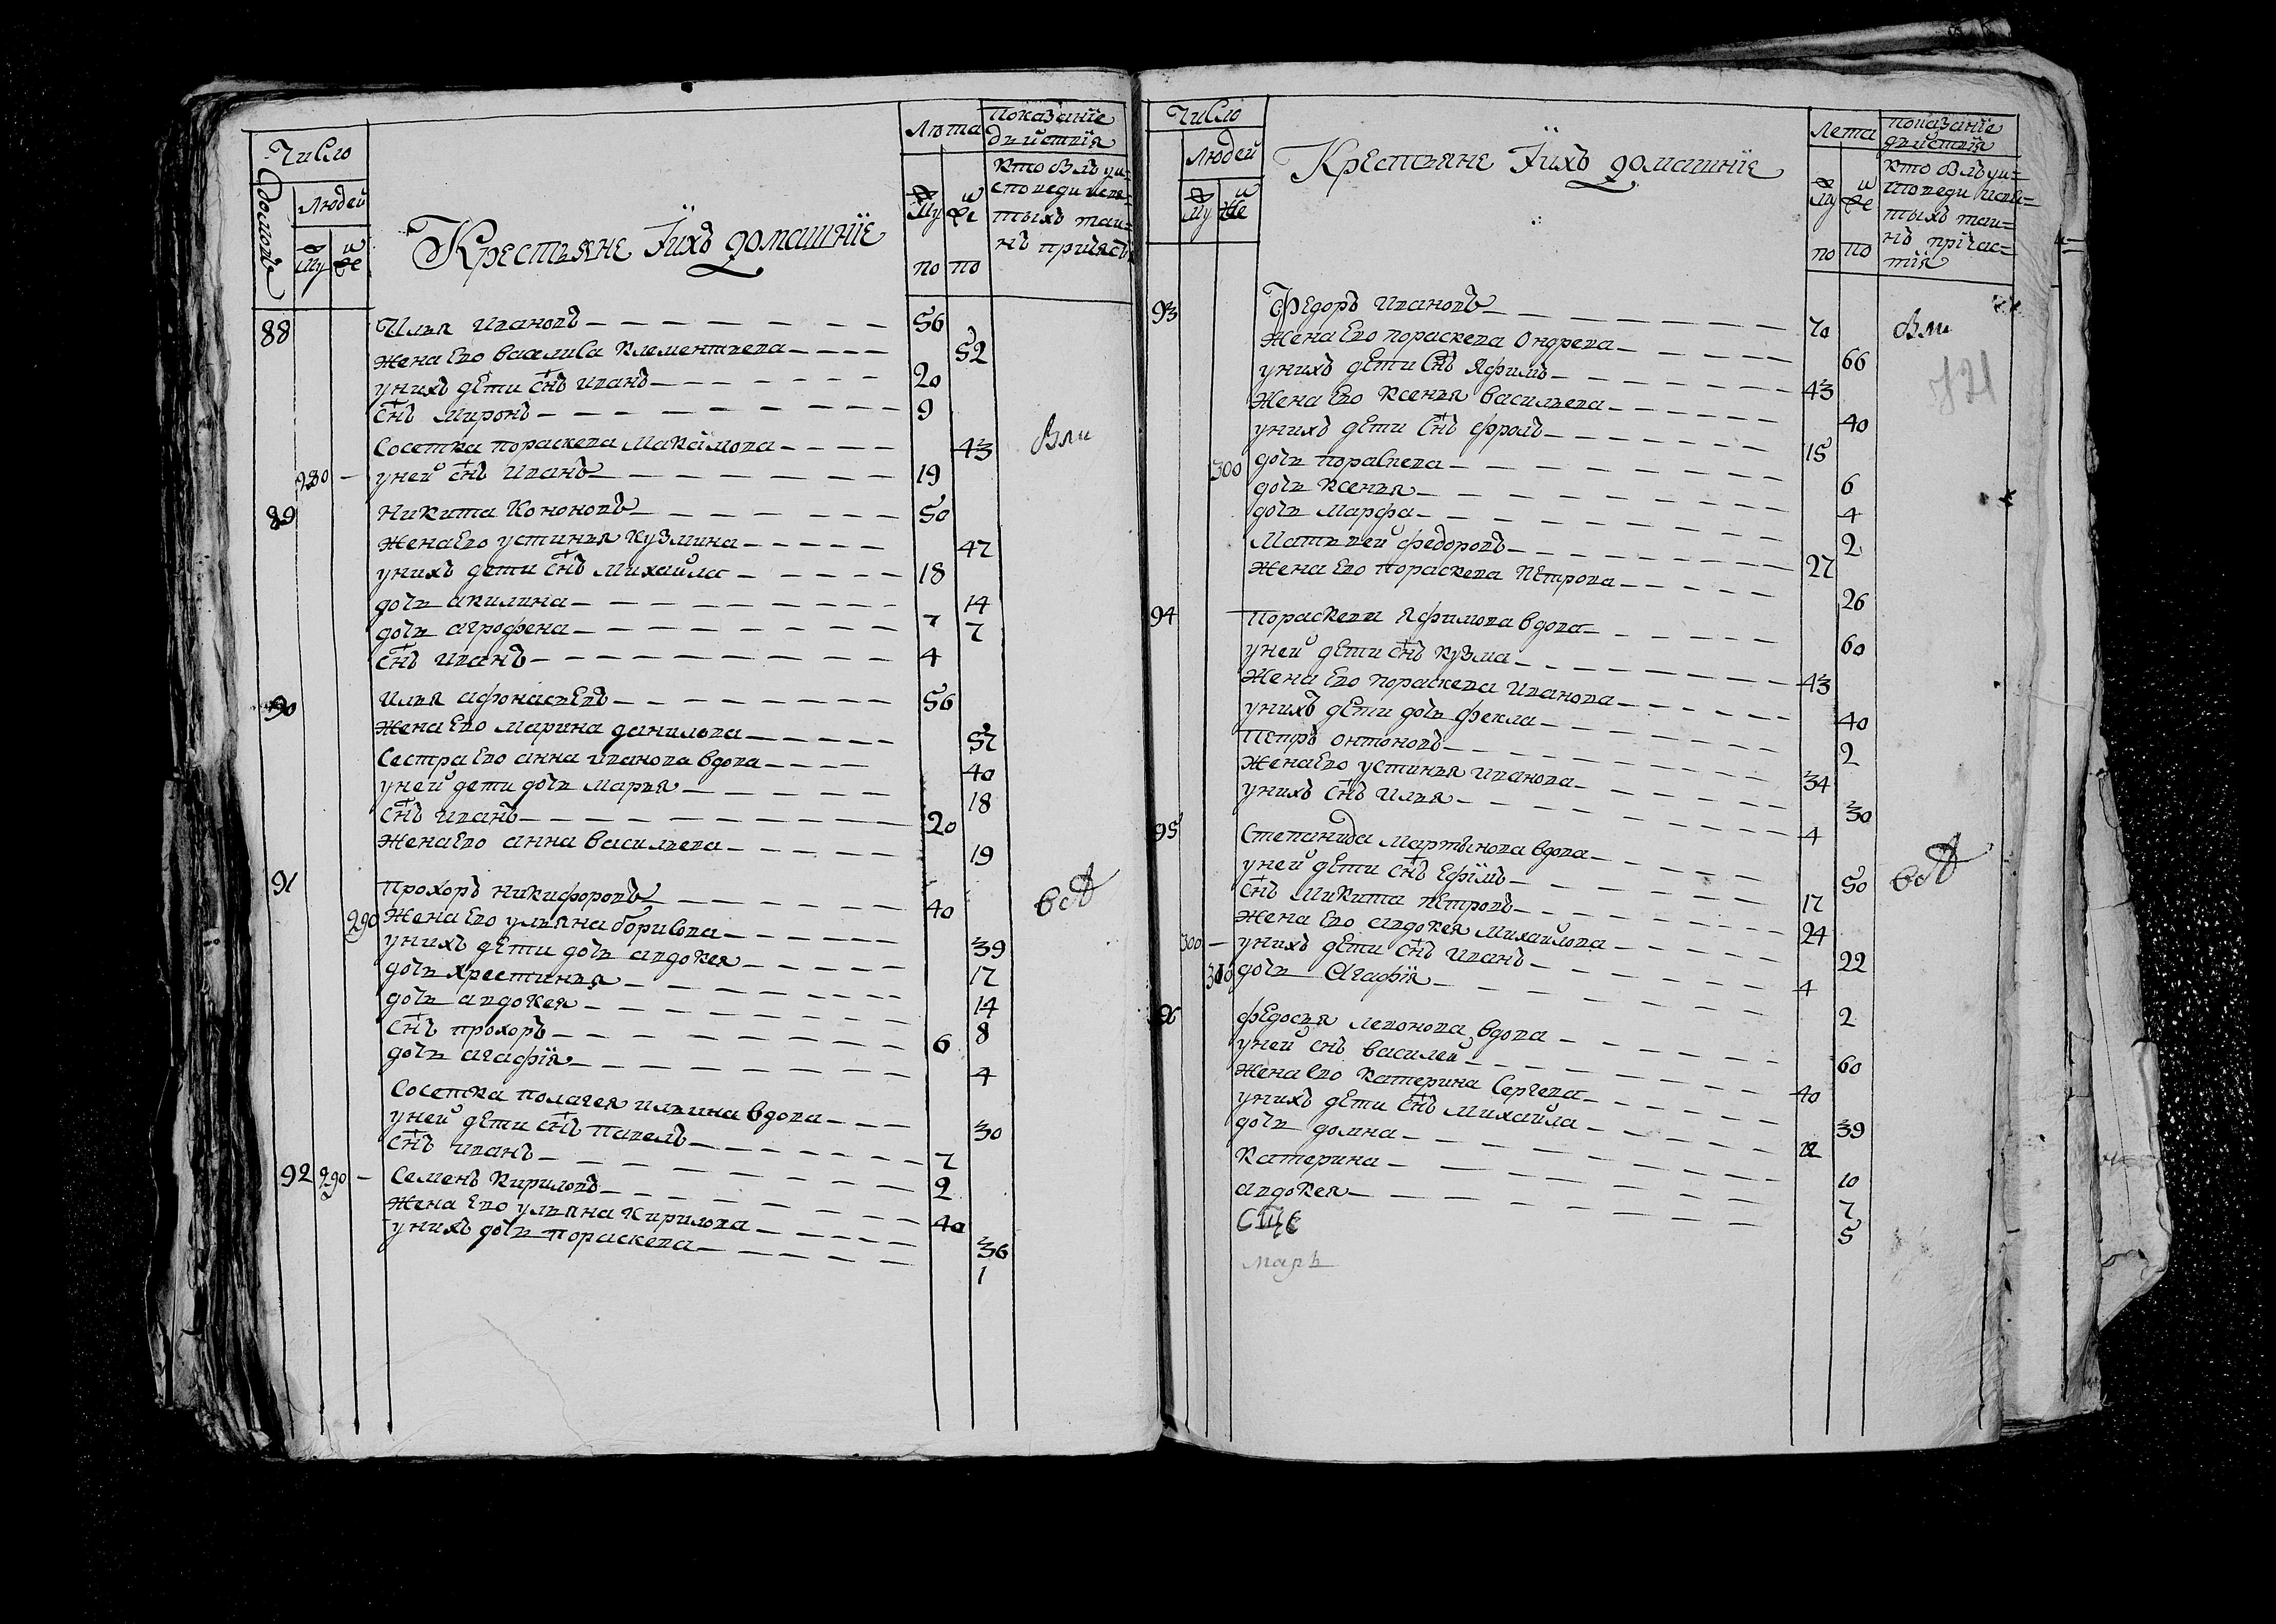 Число
Домовъ
Людей
Му
Же
Крестьяне Їихъ домашнїе
Лѣта
Му
Же
по
по
показанїе
дѣйствїя
кто былъ уи=
споведи исвя=
тыхъ таи=
нъ причас
88 Илья ивановъ 56
жена Ево василиса клементьева 52
унихъ дети снъ иванъ 20
снъ миронъ 9
Сосетка пораскева Максимова 43
были
280 – уней снъ иванъ 19
89 Никита Кононовъ 50
жена Ево устинья кузмина 47
унихъ дети снъ михайла 18
дочь акилина 14
дочь агрофена 7 7
снъ иванъ 4
90 Илья афонасьевъ 56
жена Ево марина данилова 57
сестра Ево анна иванова вдова 40
уней дети дочь марья 18
снъ иванъ 20
жена Ево анна васильева 19
91 Прохоръ никифоровъ 40
290 жена Ево ульяна борисова 39
унихъ дети дочь авдокея 17
дочь хрестинья 14
дочь авдокея 8
снъ прохоръ 6
дочь агафїя 4
Сосетка полагея ильина вдова 30
уней дети снъ павелъ 7
снъ иванъ 2
92 290 – Семенъ Кириловъ 40
жена Ево ульяна кирилова 36
унихъ дочь пораскева 1
Число
Людей
Му
Же
Крестьяне Їихъ домашнїе
Лета
Му
Же
по
по
показанїе
дѣйствїя
кто былъ уи=
споведи исвя=
тыхъ таи=
нъ прїчас=
тїя
93 Федоръ ивановъ 70
были
жена Ево пораскева Ондрева 66
унихъ дети снъ Яфимъ 43
жена Ево ксенья васильева 40
унихъ дети снъ фролъ 15
300 дочь пораскева 6
дочь ксенья 4
дочь марфа 2
Матьвей федоровъ 27
жена Ево пораскева петрова 26
94 Пораскева Яфимова вдова 60
уней дети снъ кузма 43
жена Ево пораскева иванова 40
унихъ дети дочь фекла 2
петръ онтоновъ 34
жена Ево устинья иванова 30
унихъ снъ илья 4
95 Степанида мартынова вдова 50
уней дети снъ Ефїмъ 17
снъ Микита петровъ 24
жена Ево авдокея михайлова 22
300 – унихъ дети снъ иванъ 4
310 дочь агафїя 2
96 федосья левонова вдова 60
уней снъ василеи 40
жена Ево катерина Сергева 39
унихъ дети снъ михайла 12
дочь домна 10
катерина 7
авдокея 5